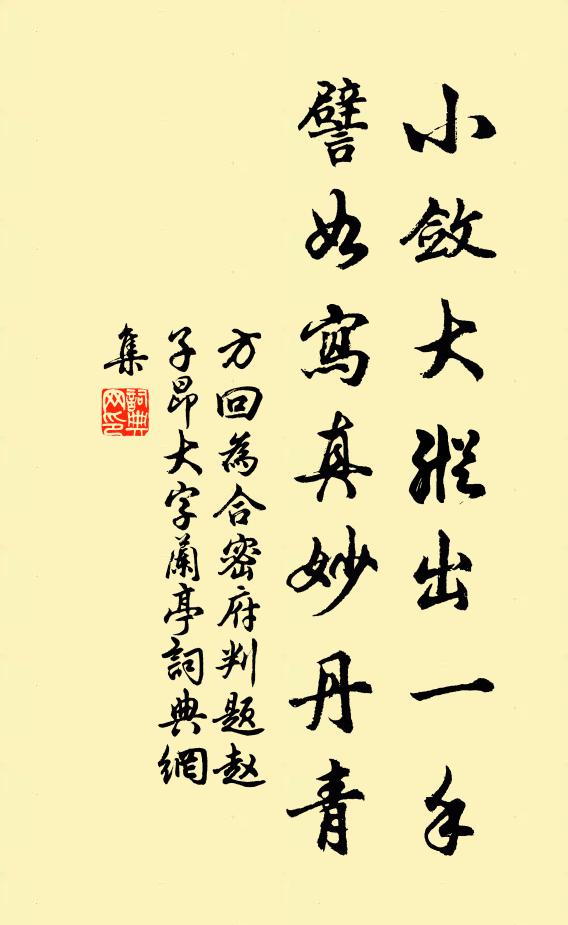 小斂大縱出一手
譬如寫真妙丹青
方回為合密府判題赵
子昂大字蘭亭詞典網
集
詞典
网印